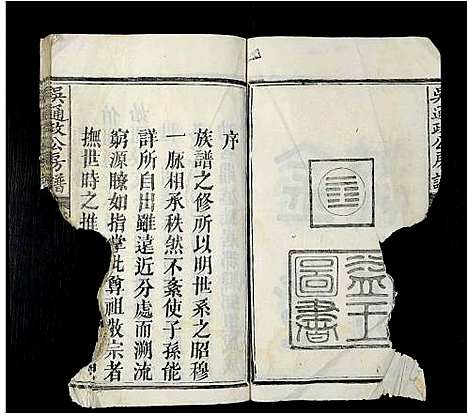 吳通政公房譜
益王
圖書
序
族譜之修所以明世系之昭穆
一脉相承秩然不紊使子孫能
詳所自出雖遠近分處而溯流
窮源瞭如指掌此尊祖敬宗者
撫世時之推
吳通政公房譜